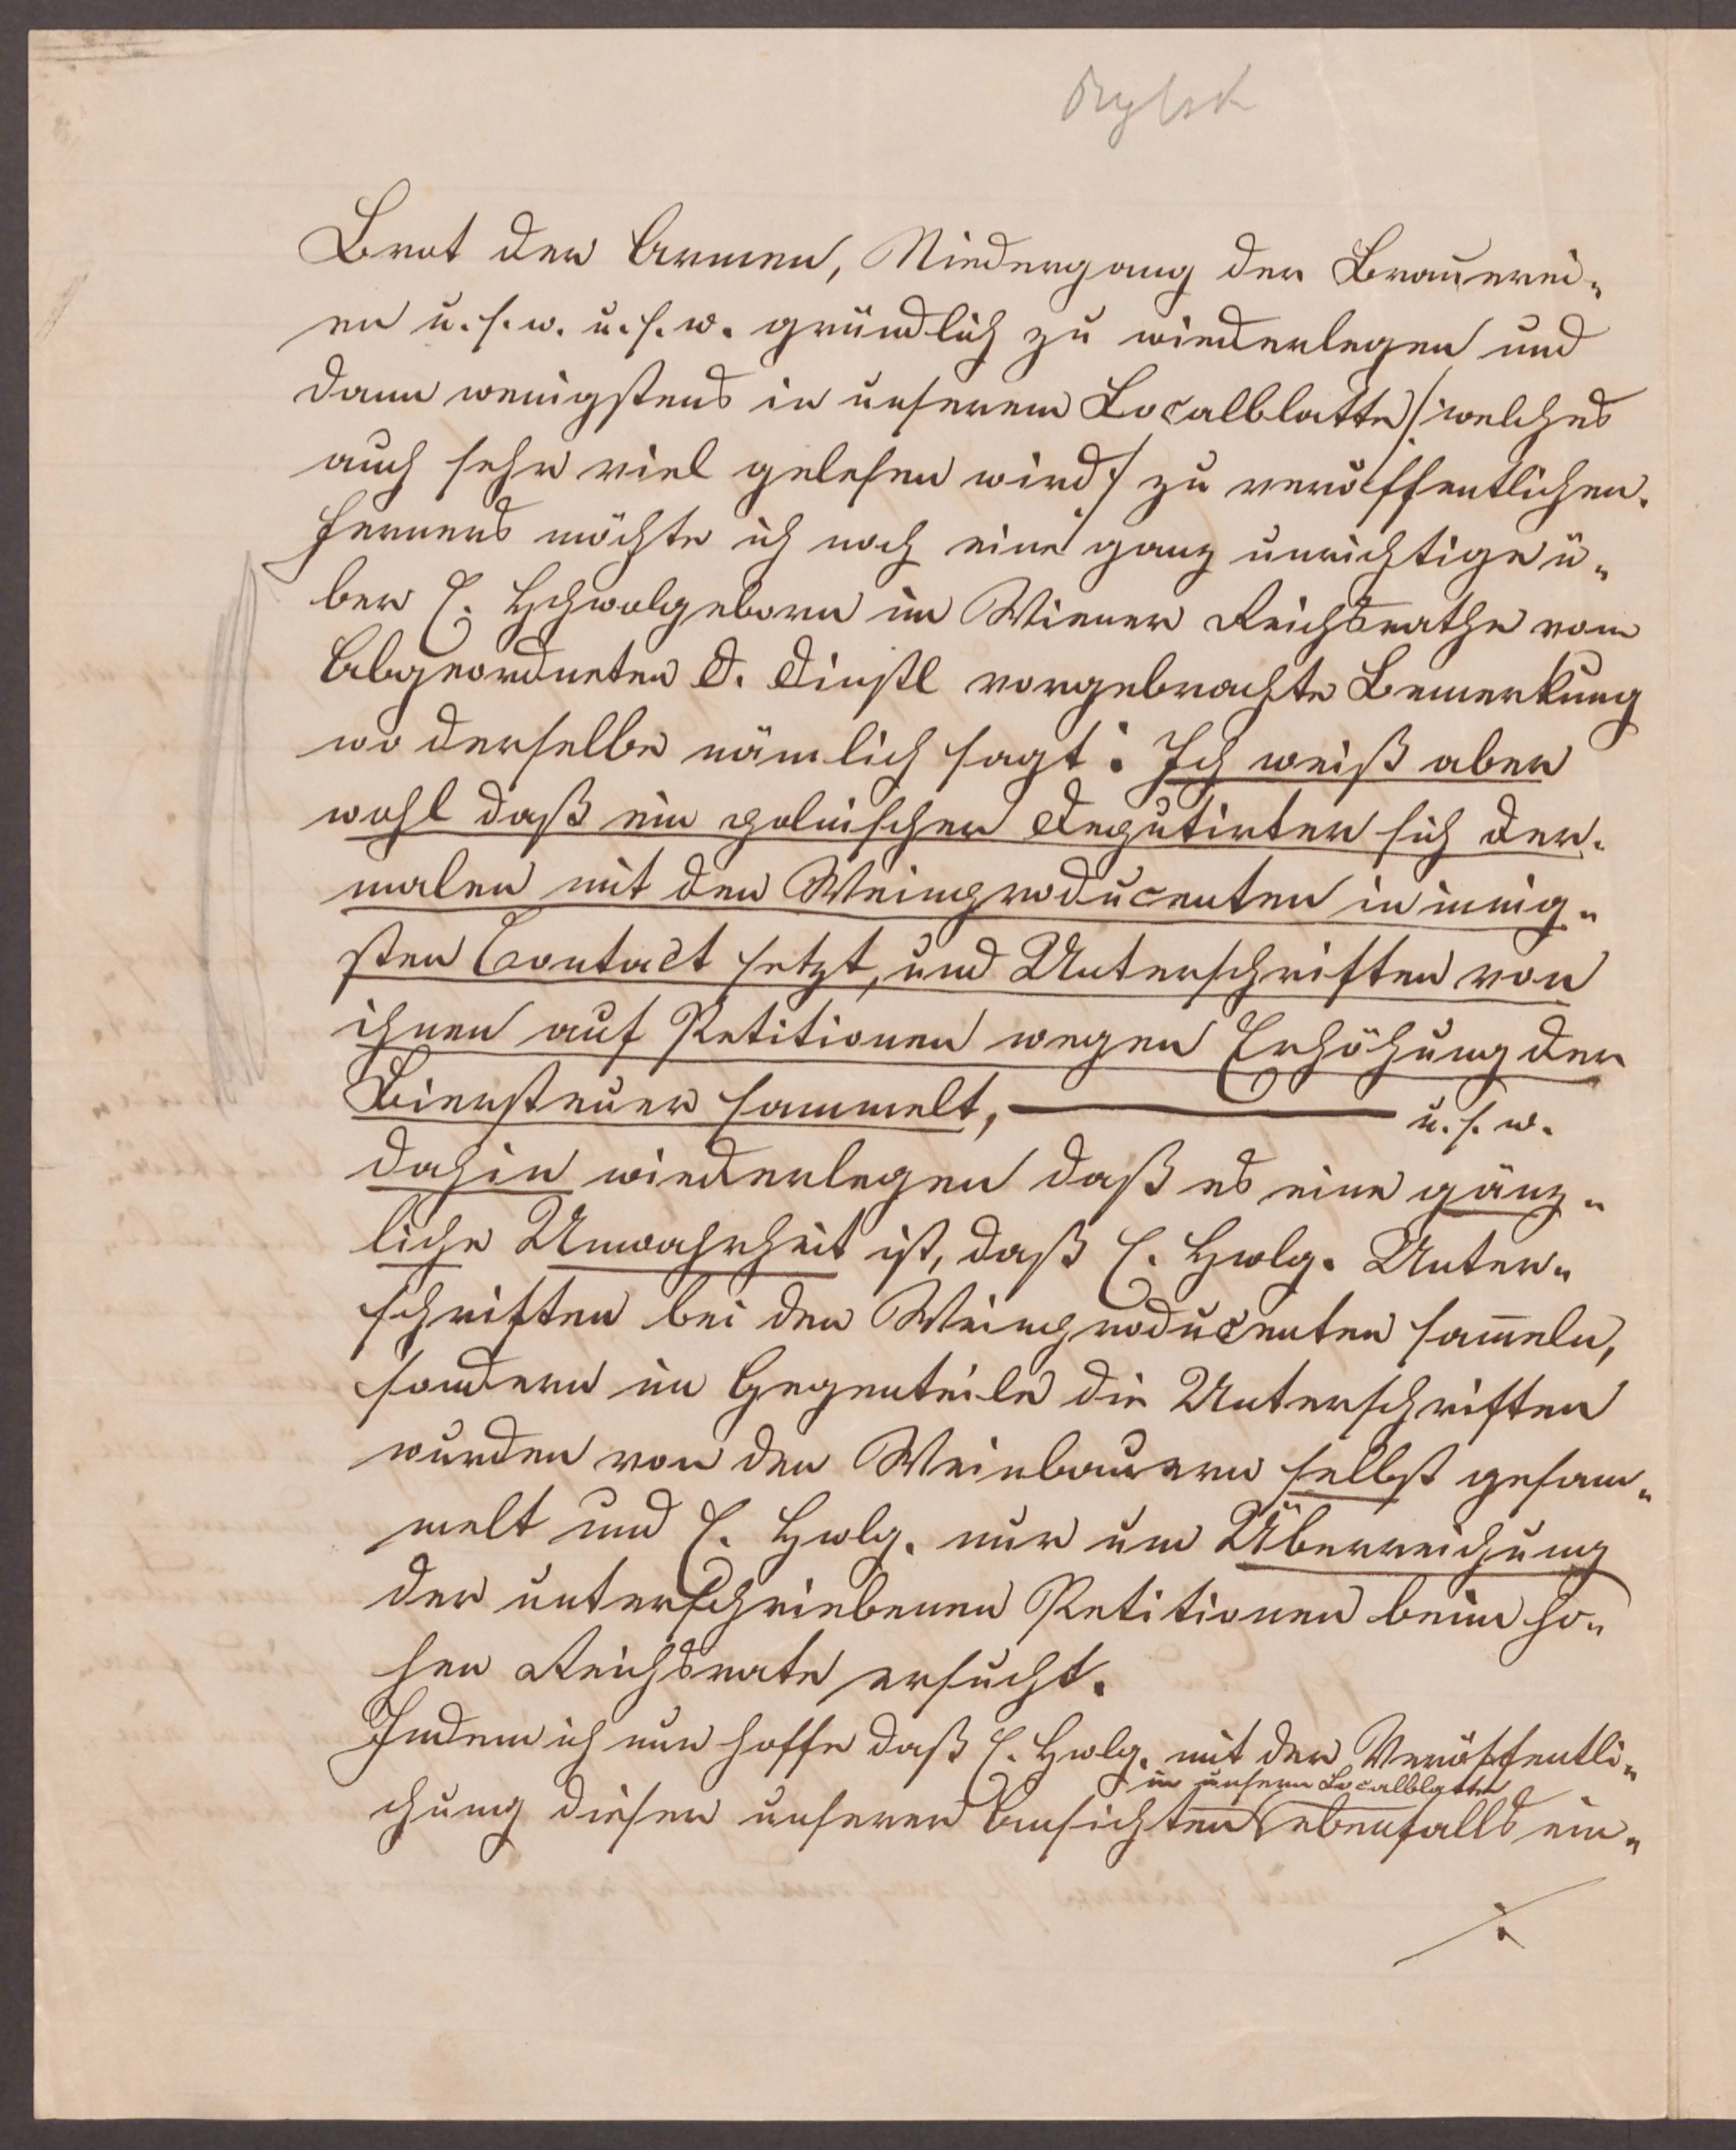 Brot der Armen, Niedergang der Brauerei-
en u. s. w. u. s. w. gründlich zu wiederlegen und
dann wenigstens in unserem Localblatte /: welches
auch sehr viel gelesen wird :/ zu veröffentlichen.
Ferners möchte ich noch eine ganz unrichtige ü-
ber E. Hchwolgeborn im Wiener Reichsrathe vom
Abgeordneten D. Dinstl vorgebrachte Bemerkung
wo derselbe nämlich sagt: Ich weiß aber
wohl daß ein polnischer Deputirter sich der-
malen mit den Weinproducenten in innig-
sten Contact setzt, und Unterschriften von
ihnen auf Petitionen wegen Erhöhung der
Biersteuer sammelt, ——— u. s. w.
dahin wiederlegen daß es eine gänz-
liche Unwahrheit ist, daß E. Hwlg. Unter-
schriften bei den Weinproducenten sam̄eln,
sondern im Gegenteile die Unterschriften
wurden von den Weinbauern selbst gesam-
melt und E. Hwlg. nur um Überreichung
der unterschriebenen Petitionen beim ho-
hen Reichsrate ersucht.
Indem ich nun hoffe daß E. Hwlg. mit der Veröffentli-
in unserm Localblatte
chung dieser unserer Ansichten ebenfalls ein-
./.